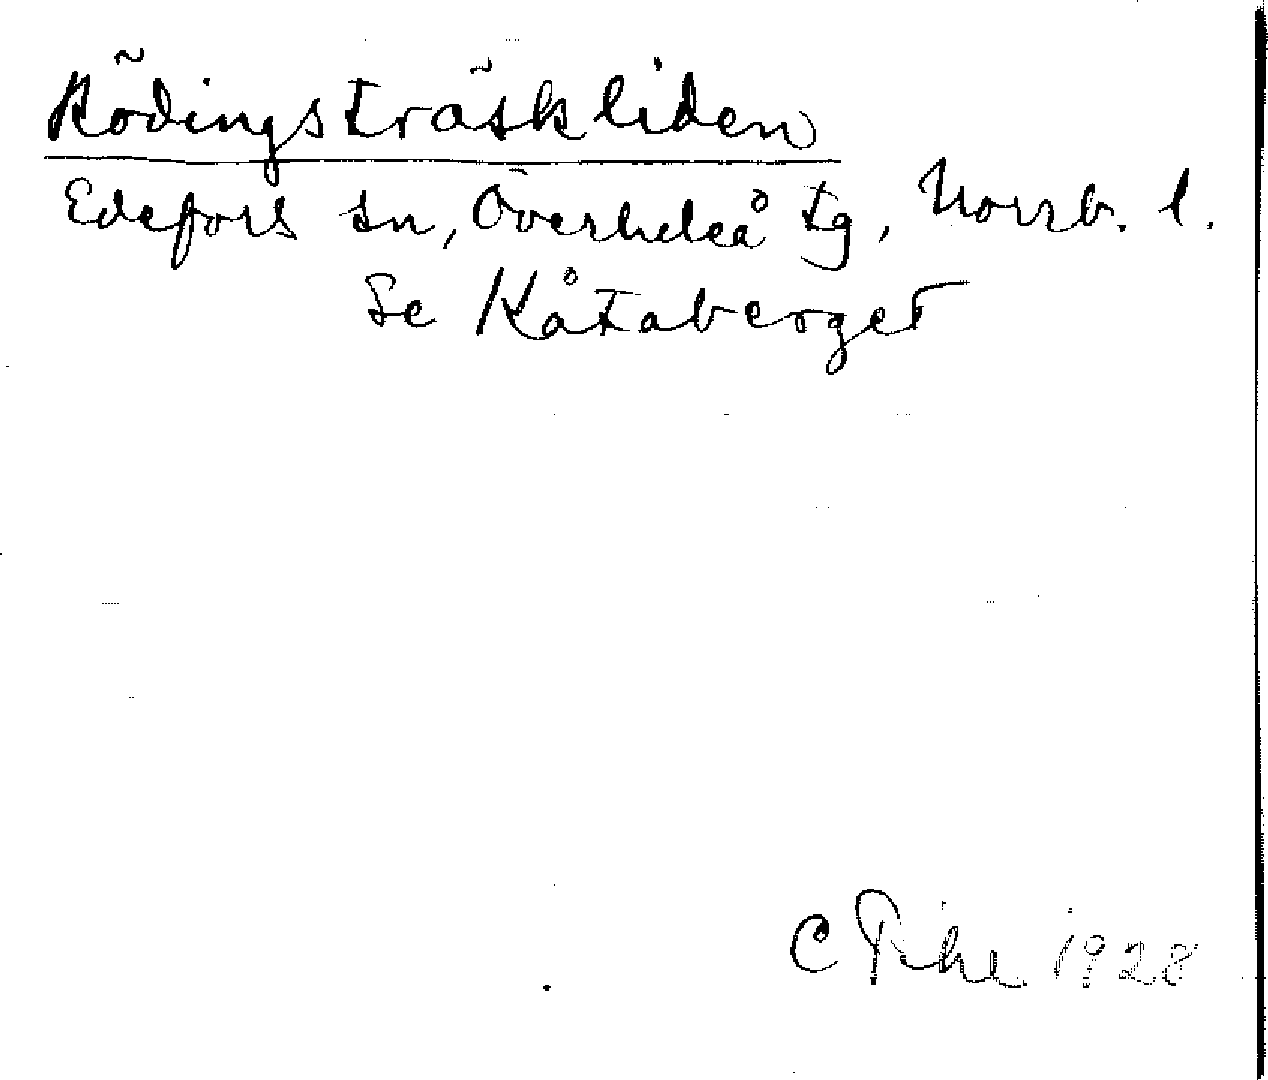 Rödingsträskliden
Edefors sn, Överluleå tg, Norrb. l.
Se Kåtaberget
C Pihl 1928